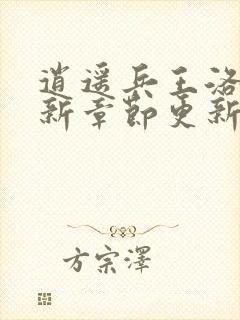 逍遥兵王洛
新章节更新
方宗泽